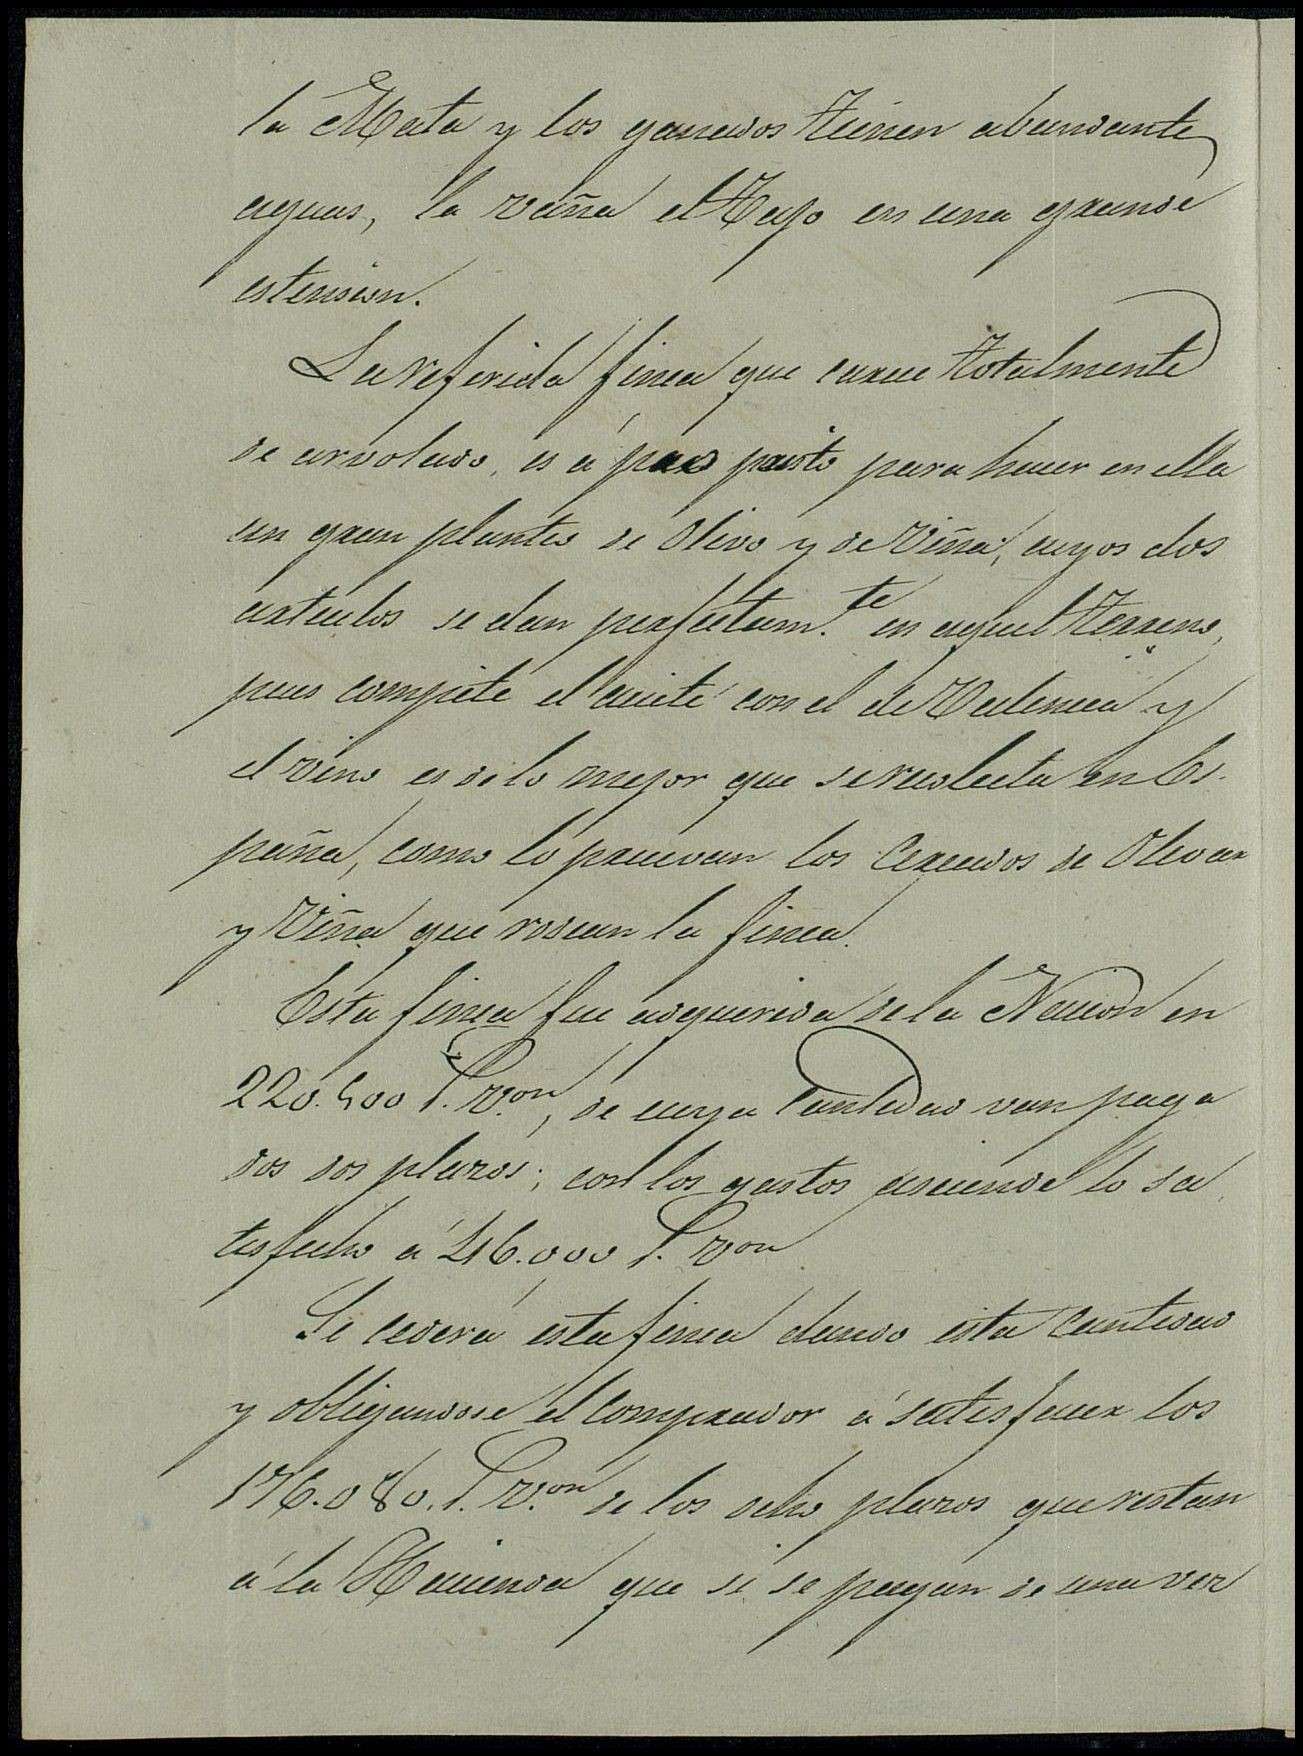 la Mata y los ganados tienen abundante
aguas, la vaña el Tajo en una grande
estension.
La referida finca que carece totalmente
de arvolado, es á proposito para hacer en ella
un gran plantio de Olivo y de Viña, cuyos dos
articulos se dan perfectam.te en aquel terreno,
pues compite el aceite con el de Valencia y
el vino es de lo mejor que se recolecta en Es-
paña, como lo pruevan los Cercados de Olivar
y Viña que rodean la finca.
Esta finca fue adquerida de la Nacion en
220.500 r. von, de cuya Cantidad van paga
dos dos plazos; con los gastos asciende lo sa
tisfecho á 46.000 r. von
Se cederá esta finca dando esta Cantidad
y obligandose el Comprador á satisfacer los
176.080. r. von de los ocho plazos que restan
á la Hacienda que si se pagan de una vez